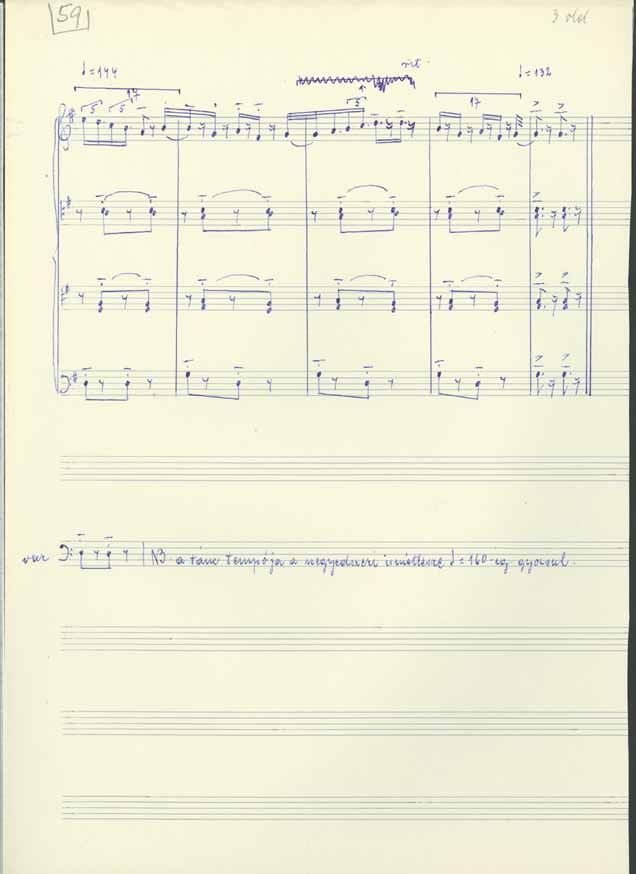 59
3 old
♩=144
rit
♩=132
17
17
5
5
5
NB a tánc tempója a negyedszeri ismétlésre ♩=160-ig gyorsul.